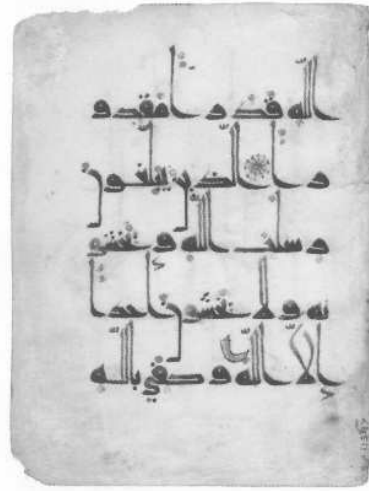 اللّه قدرا مقدو
را الّذين يبلغون
رسلت اللّه ويخشو
نه ولا يخشون أحدا
إلّا اللّه وكفى باللّه